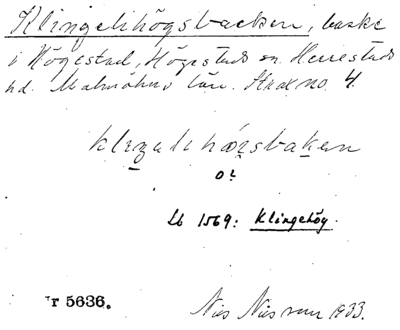 Klingelihögsbacken, backe
i Högestad, Högestads sn. Herrestads
hd. Malmöhus län. Strax no. 4.
klıŋalıhǿısbakən
Lb 1569: Klingehög.
r 5636.
Nils Nilsson 1933.